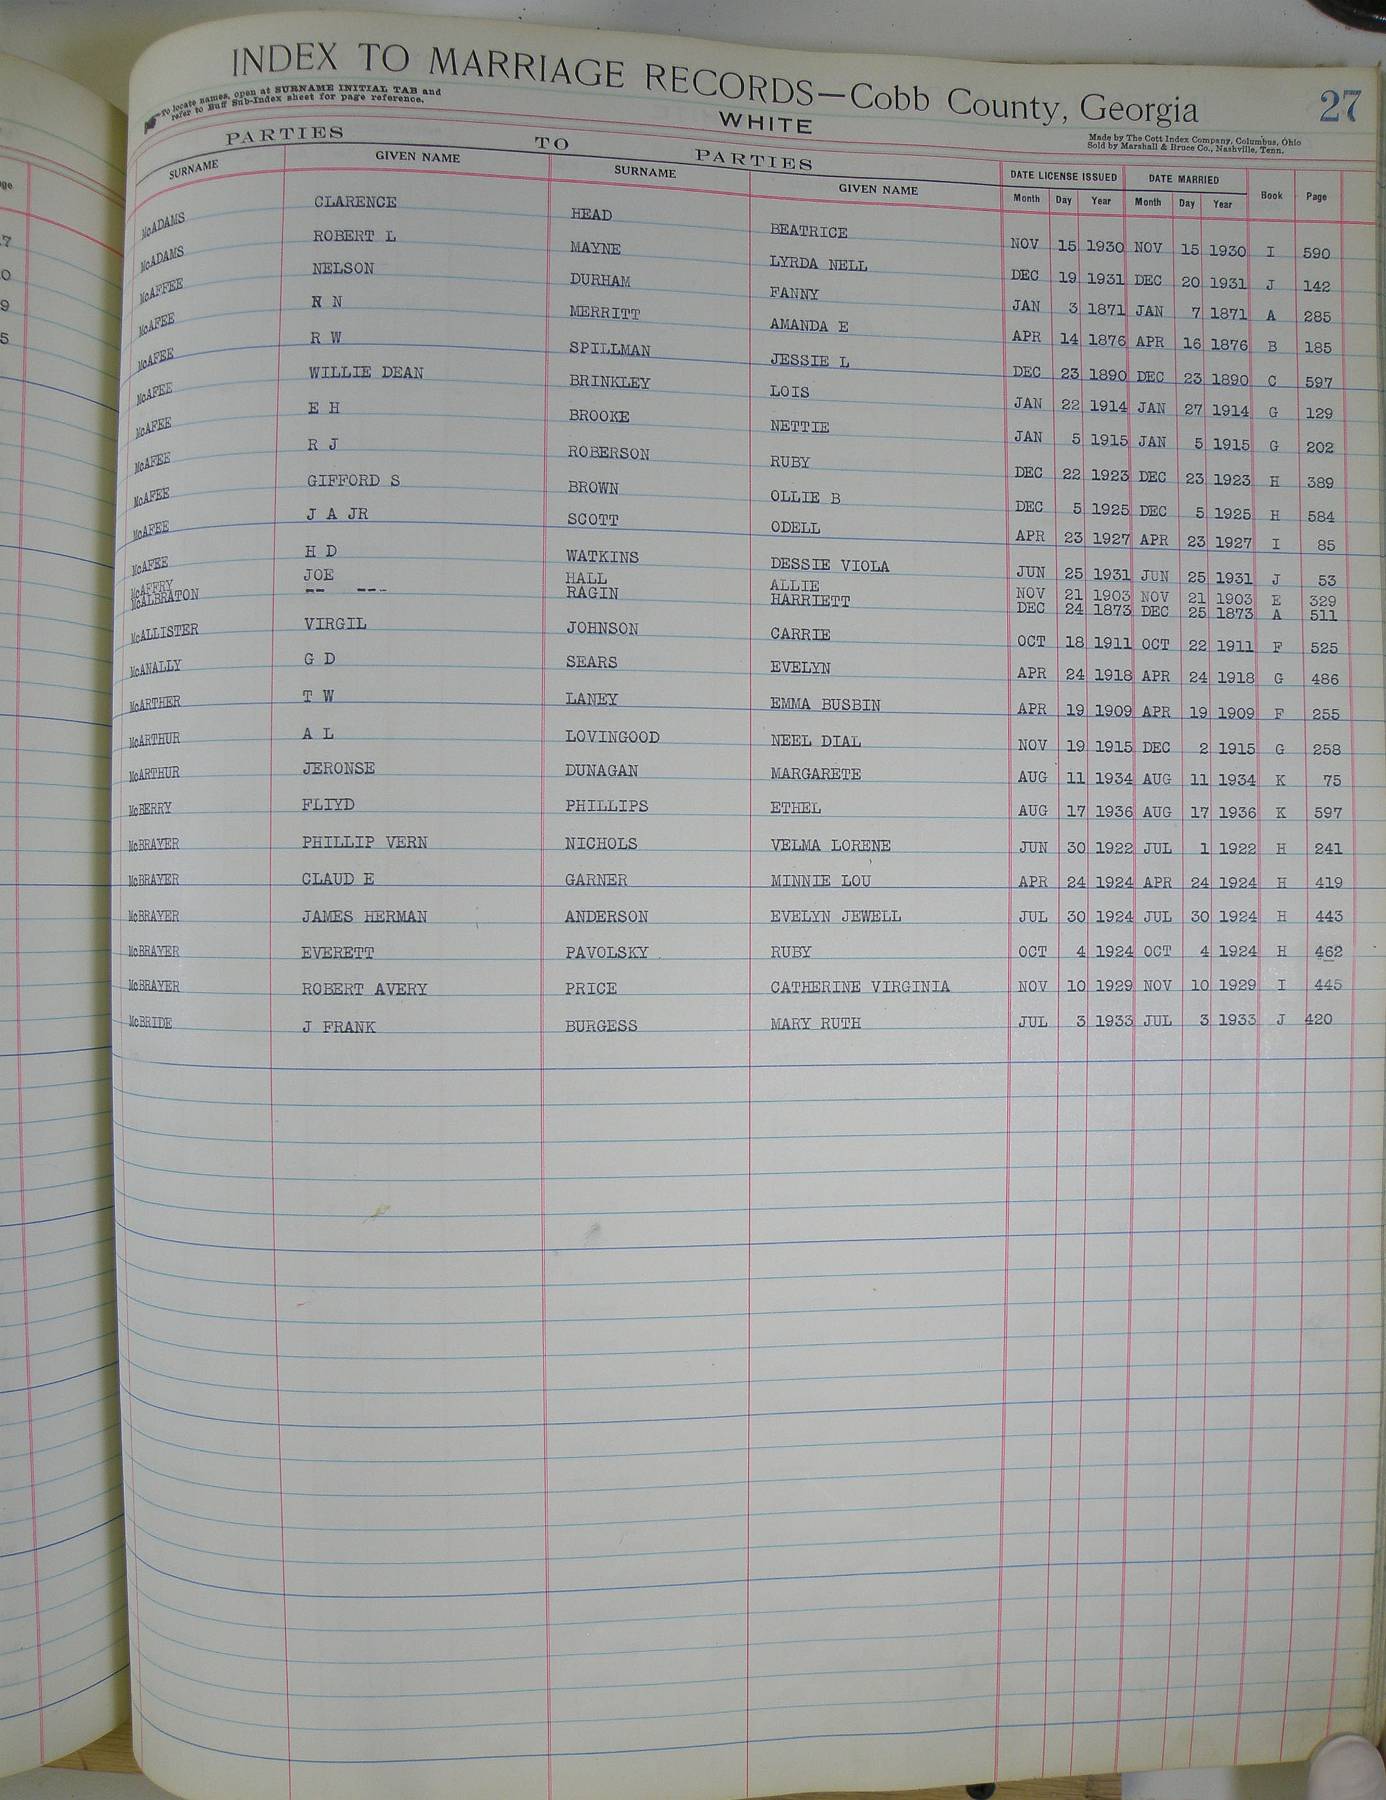 INDEX TO MARRIAGE RECORDS—Cobb County, Georgia 27
To locate names, open at SURNAME INITIAL TAB and
refer to Buff Sub-Index sheet for page reference.
WHITE
Made by The Cott Index Company, Columbus, Ohio
Sold by Marshall & Bruce Co., Nashville, Tenn.
PARTIES TO PARTIES
SURNAME GIVEN NAME SURNAME GIVEN NAME DATE LICENSE ISSUED DATE MARRIED Book Page
Month Day Year Month Day Year
McADAMS CLARENCE HEAD BEATRICE NOV 15 1930 NOV 15 1930 I 590
McADAMS ROBERT L MAYNE LYRDA NELL DEC 19 1931 DEC 20 1931 J 142
McAFFEE NELSON DURHAM FANNY JAN 3 1871 JAN 7 1871 A 285
McAFEE R N MERRITT AMANDA E APR 14 1876 APR 16 1876 B 185
McAFEE R W SPILLMAN JESSIE L DEC 23 1890 DEC 23 1890 C 597
McAFEE WILLIE DEAN BRINKLEY LOIS JAN 22 1914 JAN 27 1914 G 129
McAFEE E H BROOKE NETTIE JAN 5 1915 JAN 5 1915 G 202
McAFEE R J ROBERSON RUBY DEC 22 1923 DEC 23 1923 H 389
McAFEE GIFFORD S BROWN OLLIE B DEC 5 1925 DEC 5 1925 H 584
McAFEE J A JR SCOTT ODELL APR 23 1927 APR 23 1927 I 85
McAFEE H D WATKINS DESSIE VIOLA JUN 25 1931 JUN 25 1931 J 53
McAFFRY JOE HALL ALLIE NOV 21 1903 NOV 21 1903 E 329
McALBRATON -- --- RAGIN HARRIETT DEC 24 1873 DEC 25 1873 A 511
McALLISTER VIRGIL JOHNSON CARRIE OCT 18 1911 OCT 22 1911 F 525
McANALLY G D SEARS EVELYN APR 24 1918 APR 24 1918 G 486
McARTHER T W LANEY EMMA BUSBIN APR 19 1909 APR 19 1909 F 255
McARTHUR A L LOVINGOOD NEEL DIAL NOV 19 1915 DEC 2 1915 G 258
McARTHUR JERONSE DUNAGAN MARGARETE AUG 11 1934 AUG 11 1934 K 75
McBERRY FLIYD PHILLIPS ETHEL AUG 17 1936 AUG 17 1936 K 597
McBRAYER PHILLIP VERN NICHOLS VELMA LORENE JUN 30 1922 JUL 1 1922 H 241
McBRAYER CLAUD E GARNER MINNIE LOU APR 24 1924 APR 24 1924 H 419
McBRAYER JAMES HERMAN ANDERSON EVELYN JEWELL JUL 30 1924 JUL 30 1924 H 443
McBRAYER EVERETT PAVOLSKY RUBY OCT 4 1924 OCT 4 1924 H 462
McBRAYER ROBERT AVERY PRICE CATHERINE VIRGINIA NOV 10 1929 NOV 10 1929 I 445
McBRIDE J FRANK BURGESS MARY RUTH JUL 3 1933 JUL 3 1933 J 420